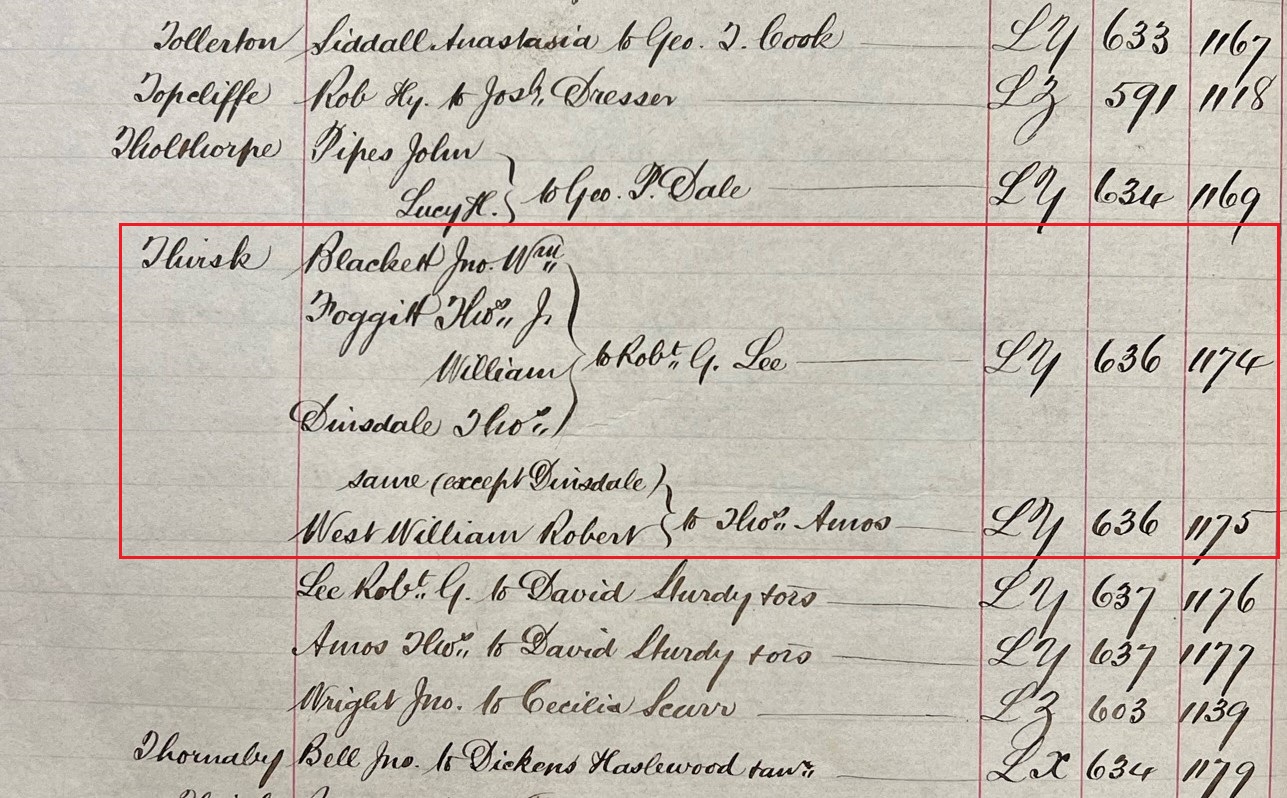 Tollerton Siddall Anastasia to Geo. T. Cook LY 633 1167
Topcliffe Rob Hy. to Josh. Dresser LZ 591 1118
Tholthorpe Pipes John
Lucy H. } to Geo. P. Dale LY 634 1169
Thirsk Blackett Jno. Wm
Foggitt Thos. J.
William } to Robt. G. Lee LY 636 1174
Dinsdale Thos.
same (except Dinsdale)
West William Robert } to Thos. Amos LY 636 1175
Lee Robt. G. to David Sturdy & ors LY 637 1176
Amos Thos. to David Sturdy & ors LY 637 1177
Wright Jno. to Cecilia Scurr LZ 603 1139
Thornaby Bell Jno. to Dickens Haslewood & anr. LX 634 1179